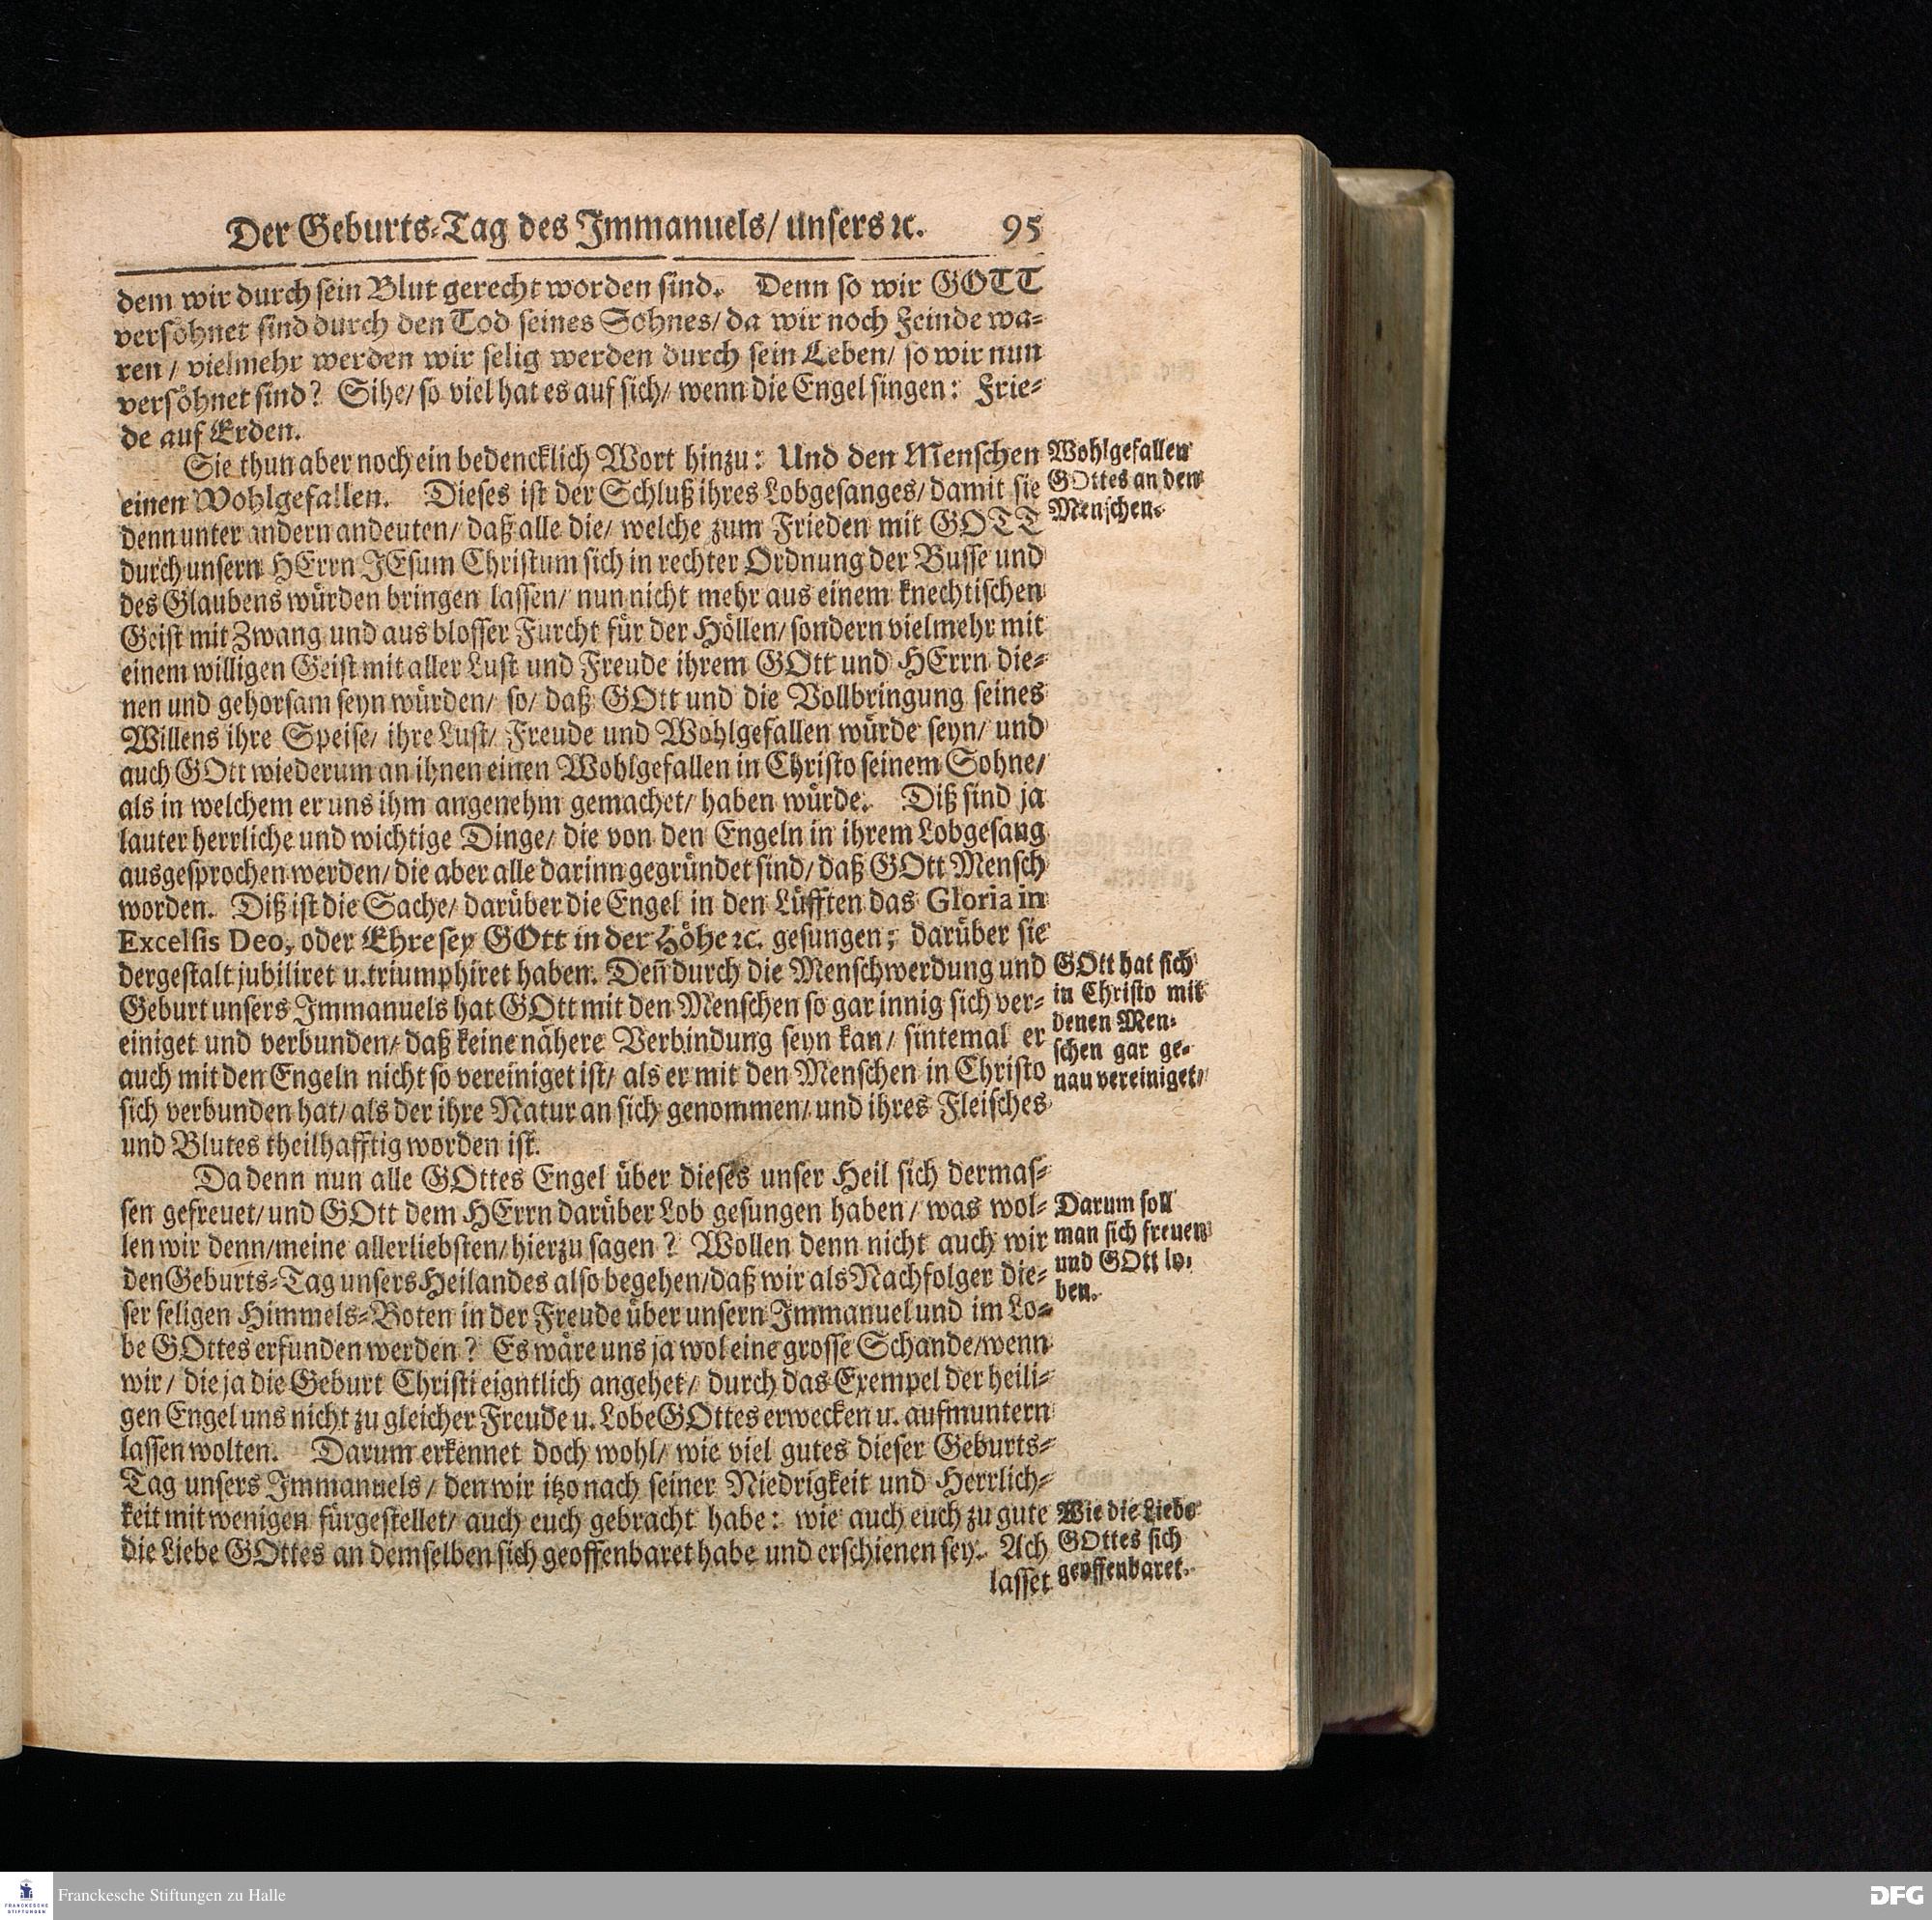 Der Geburts-Tag des Immanuels/ unsers ꝛc. 95
dem wir durch sein Blut gerecht worden sind. Denn so wir GOTT
versöhnet sind durch den Tod seines Sohnes/ da wir noch Feinde wa-
ren/ vielmehr werden wir selig werden durch sein Leben/ so wir nun
versöhnet sind? Sihe/ so viel hat es auf sich/ wenn die Engel singen: Frie-
de auf Erden.
Sie thun aber noch ein bedencklich Wort hinzu: Und den Menschen
einen Wohlgefallen. Dieses ist der Schluß ihres Lobgesanges/ damit sie
denn unter andern andeuten/ daß alle die/ welche zum Frieden mit GOTT
durch unsern HErrn JEsum Christum sich in rechter Ordnung der Busse und
des Glaubens würden bringen lassen/ nun nicht mehr aus einem knechtischen
Geist mit Zwang und aus blosser Furcht für der Höllen/ sondern vielmehr mit
einem willigen Geist mit aller Lust und Freude ihrem GOtt und HErrn die-
nen und gehorsam seyn würden/ so/ daß GOtt und die Vollbringung seines
Willens ihre Speise/ ihre Lust/ Freude und Wohlgefallen würde seyn/ und
auch GOtt wiederum an ihnen einen Wohlgefallen in Christo seinem Sohne/
als in welchem er uns ihm angenehm gemachet/ haben würde. Diß sind ja
lauter herrliche und wichtige Dinge/ die von den Engeln in ihrem Lobgesang
ausgesprochen werden/ die aber alle darinn gegründet sind/ daß GOtt Mensch
worden. Diß ist die Sache/ darüber die Engel in den Lüfften das Gloria in
Excelsis Deo, oder Ehre sey GOtt in der Höhe ꝛc. gesungen; darüber sie
dergestalt jubiliret u. triumphiret haben. Deñ durch die Menschwerdung und
Geburt unsers Immanuels hat GOtt mit den Menschen so gar innig sich ver-
einiget und verbunden/ daß keine nähere Verbindung seyn kan/ sintemal er
auch mit den Engeln nicht so vereiniget ist/ als er mit den Menschen in Christo
sich verbunden hat/ als der ihre Natur an sich genommen/ und ihres Fleisches
und Blutes theilhafftig worden ist.
Da denn nun alle GOttes Engel über dieses unser Heil sich dermas-
sen gefreuet/ und GOtt dem HErrn darüber Lob gesungen haben/ was wol-
len wir denn/ meine allerliebsten/ hierzu sagen? Wollen denn nicht auch wir
den Geburts-Tag unsers Heilandes also begehen/ daß wir als Nachfolger die-
ser seligen Himmels-Boten in der Freude über unsern Immanuel und im Lo-
be GOttes erfunden werden? Es wäre uns ja wol eine grosse Schande/ wenn
wir/ die ja die Geburt Christi eigntlich angehet/ durch das Exempel der heili-
gen Engel uns nicht zu gleicher Freude u. Lobe GOttes erwecken u. aufmuntern
lassen wolten. Darum erkennet doch wohl/ wie viel gutes dieser Geburts-
Tag unsers Immanuels/ den wir itzo nach seiner Niedrigkeit und Herrlich-
keit mit wenigen fürgestellet/ auch euch gebracht habe: wie auch euch zu gute
die Liebe GOttes an demselben sich geoffenbaret habe und erschienen sey. Ach
lasset
Wohlgefallen
GOttes an den
Menschen.
GOtt hat sich
in Christo mit
denen Men-
schen gar ge-
nau vereiniget/
Darum soll
man sich freuen
und GOtt lo-
ben.
Wie die Liebe
GOttes sich
geoffenbaret.
Franckesche Stiftungen zu Halle
FRANCKESCHE
STIFTUNGEN
DFG